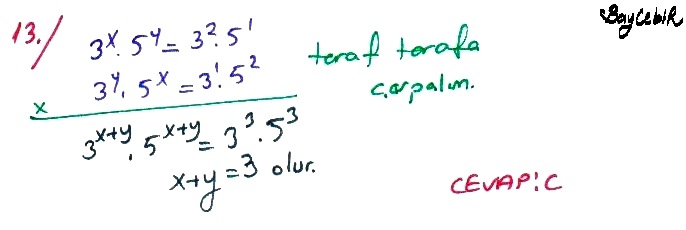 BayCebiR
13./ 3^x . 5^y = 3^2 . 5^1
3^y . 5^x = 3^1 . 5^2
taraf tarafa
çarpalım.
x
3^x+y . 5^x+y = 3^3 . 5^3
x+y = 3 olur.
CEVAP: C